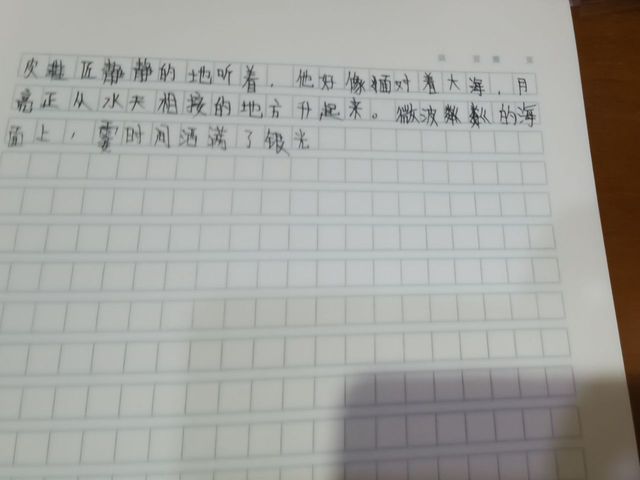 皮鞋匠静静的地听着，他好像面对着大海，月
亮正从水天相接的地方升起来。微波粼粼的海
面上，霎时间洒满了银光